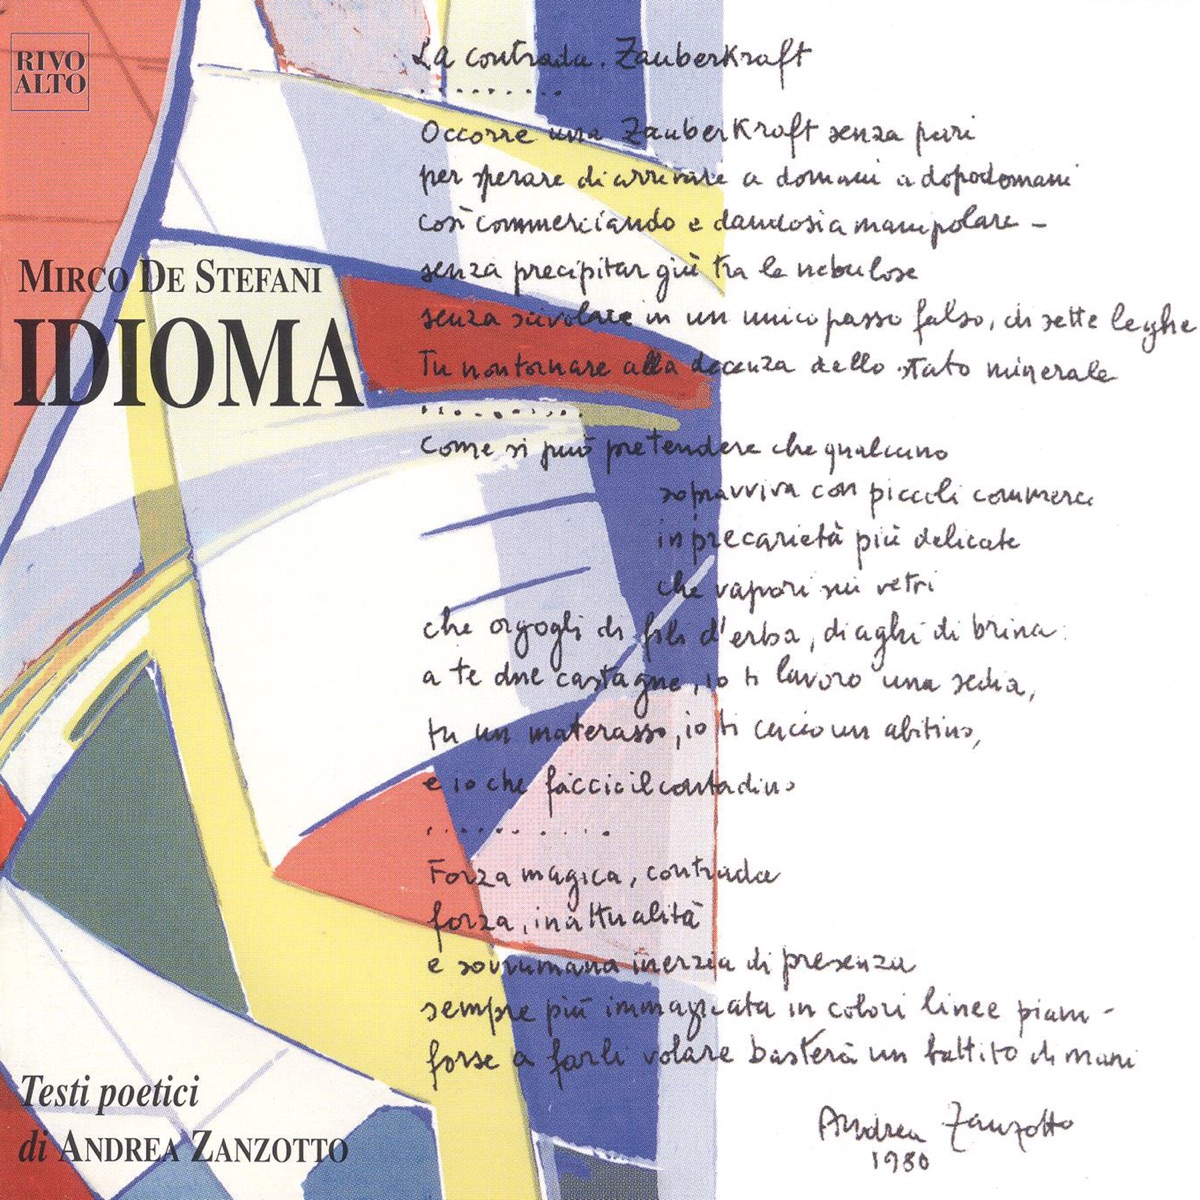 RIVO
ALTO
MIRCO DE STEFANI
IDIOMA
Testi poetici
di ANDREA ZANZOTTO
La contrada. Zauberkraft
..........
Occorre una Zauberkraft senza pari
per sperare di arrivare a domani a dopodomani
così commerciando e dandosi a manipolare –
senza precipitar giù tra le nebulose
senza scivolare in un unico passo falso, di sette leghe
Tu non tornare alla decenza dello stato minerale
..........
Come si può pretendere che qualcuno
sopravviva con piccoli commerci
in precarietà più delicate
che vapori sui vetri
che orgogli di fili d'erba, di aghi di brina:
a te due castagne, io ti lavoro una sedia,
tu un materasso, io ti cucio un abitino,
e io che faccio il contadino
..........
Forza magica, contrada
forza, inattualità
e sovrumana inerzia di presenza
sempre più immagicata in colori linee piani –
forse a farli volare basterà un battito di mani
Andrea Zanzotto
1980